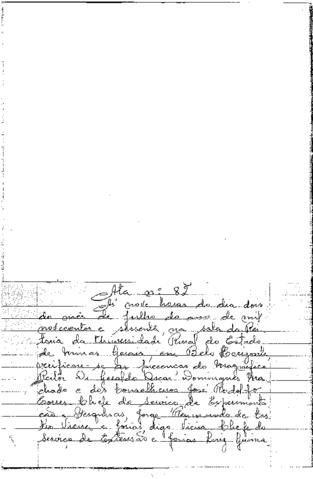 Ata nº 82
Às nove horas do dia dois
do mês de julho do ano de mil
novecentos e sessenta, na sala da Rei-
toria da Universidade Rural do Estado
de Minas Gerais em Belo Horizonte,
verificou-se as presenças do Magnífico
Reitor Dr. Geraldo Oscar Domingues Ma
chado e dos Conselheiros José Rodolfo
Torres Chefe do Serviço de Experimenta
ção e Pesquisas, Jorge Raimundo de Cas
tro Vieira e Jonas, digo Vieira Chefe do
Serviço de Extensão e Jonas